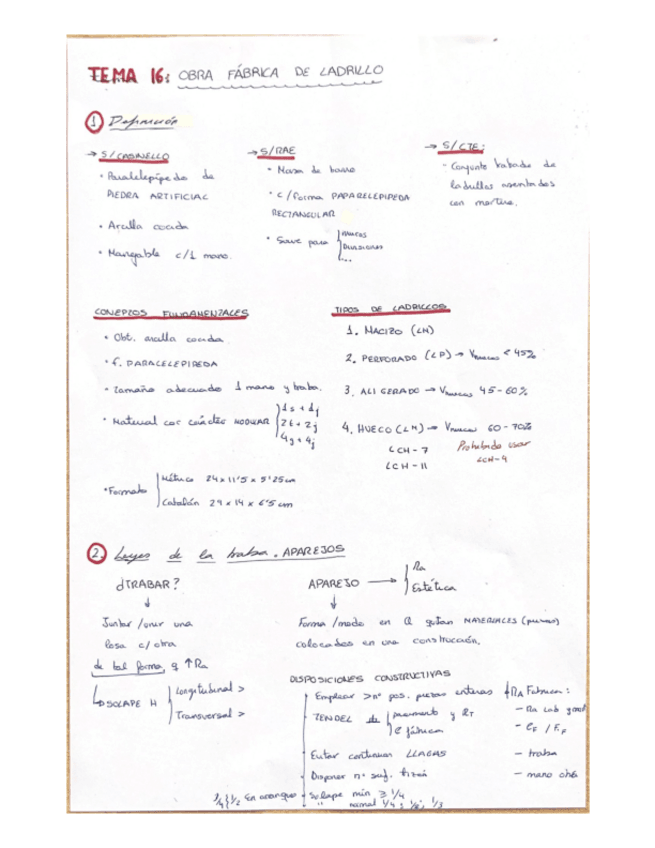 TEMA 16: OBRA FÁBRICA DE LADRILLO
① Definición
→ S/CASINELLO
· Paralelepípedo de
PIEDRA ARTIFICIAL
· Arcilla cocida
· Manejable c/1 mano.
→ S/RAE
· Masa de barro
· c/forma PAPARELEPIPEDA
RECTANGULAR
· Sirve para muros
Divisiones
...
→ S/CTE:
- Conjunto trabado de
ladrillos asentados
con mortero.
CONCEPTOS FUNDAMENTALES
· Obt. arcilla cocida
· f. PARALELEPIPEDA
· Tamaño adecuado 1 mano y traba.
· Material con carácter MODULAR 1s + 1j
2t + 2j
4g + 4j
· Formato Métrico 24 x 11'5 x 5'25 cm
Catalán 29 x 14 x 6'5 cm
TIPOS DE LADRILLOS
1. MACIZO (LM)
2. PERFORADO (LP) → Vhuecos < 45%
3. ALIGERADO → Vhuecos 45-60%
4. HUECO (LH) → Vhuecos 60-70%
LCH-7
LCH-11
Prohibido usar
LCH-4
② Leyes de la traba. APAREJOS
¿TRABAR?
↓
Juntar/unir una
cosa c/otra
de tal forma q ↑Ra
SOLAPE H Longitudinal >
Transversal >
APAREJO → Ra
Estética
↓
Forma/modo en Q quedan MATERIALES (piezas)
colocados en una construcción.
DISPOSICIONES CONSTRUCTIVAS
Emplear >nº pos. piezas enteras
TENDEL de
Evitar continuar LLAGAS
Disponer nº suf.
1/4 y 1/2 En arranque Solape min ≥ 1/4
" normal 1/4, 1/2, 1/3
Ra Fábrica:
- Ra Lad
- traba
- mano obra